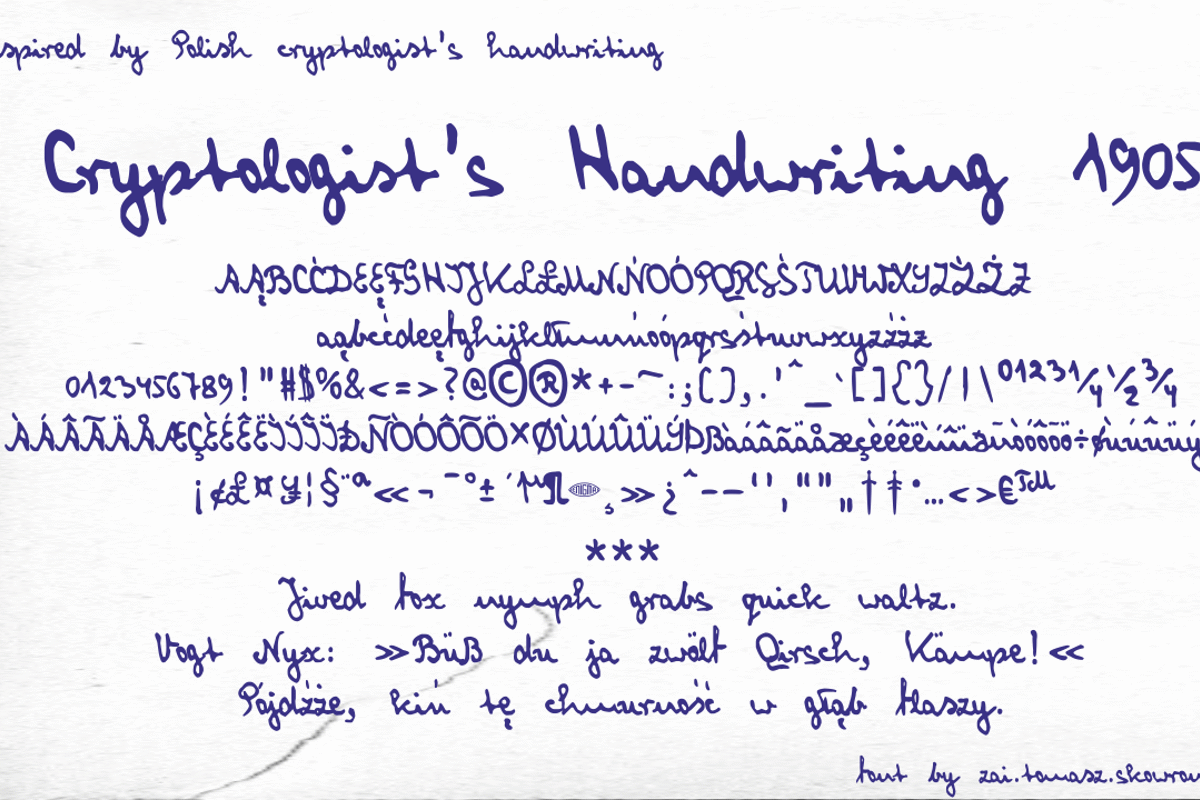 spired by Polish cryptologist's handwriting
Cryptologist's Handwriting 1905
AĄBCĆDEĘFGHIJKLŁMNŃOÓPQRSŚTUVWXYZŹŻƵ
aąbcćdeęfghijklłmnńoópqrsśtuvwxyzźżƶ
0123456789!"#$%&<=>?@©®*+-~:;(),.'^_`[]{}/|\0123¼½¾
ÀÁÂÃÄÅÆÇÈÉÊËÌÍÎÏÐÑÒÓÔÕÖ×ØÙÚÛÜÝÞßàáâãäåæçèéêëìíîïðñòóôõö÷øùúûüý
¡¢£¤¥¦§¨ª«¬¯°±´µ¶ENIGMA¸»¿ˆ–—‘’‚“”„†‡•…‹›€™
***
Jived fox nymph grabs quick waltz.
Vogt Nyx: »Büß du ja zwölf Qirsch, Kämpe!«
Pójdźże, kiń tę chmurność w głąb flaszy.
font by zai.tomasz.skowro